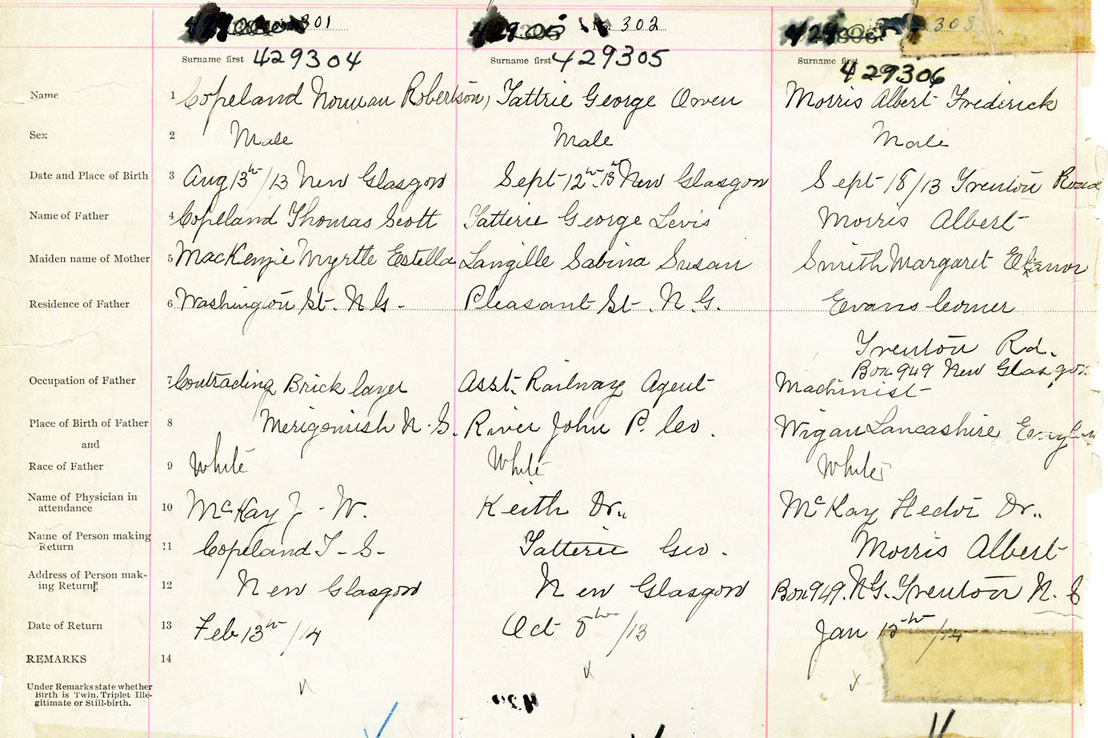 301 302 303
Surname first 429304 Surname first 429305 Surname first 429306
Name 1 Copeland Norman Robertson, Tattrie George Owen Morris Albert Frederick
Sex 2 Male Male Male
Date and Place of Birth 3 Aug 13th/13 New Glasgow Sept 12th 13 New Glasgow Sept 18/13 Trenton Road
Name of Father 4 Copeland Thomas Scott Tatterie George Levis Morris Albert
Maiden name of Mother 5 MacKenzie Myrtle Estella Langille Sabina Susan Smith Margaret
Residence of Father 6 Washington St. N.G. Pleasant St. N.G. Evans Corner
Trenton Rd.
Box 949 New Glasgow
Occupation of Father 7 Contracting Brick layer Asst. Railway Agent Machinist
Place of Birth of Father 8 Merigomish N.S. River John P. Co. Wigan Lancashire
and
Race of Father 9 White White White
Name of Physician in
attendance 10 McKay J. W. Keith Dr. McKay Hector Dr.
Name of Person making
Return 11 Copeland T. S. Tatterie Geo. Morris Albert
Address of Person mak-
ing Return 12 New Glasgow New Glasgow Box 949. N.G. Trenton N.S
Date of Return 13 Feb 13th/14 Oct 8th/13 Jan /14
REMARKS 14
Under Remarks state whether
Birth is Twin, Triplet Ille-
gitimate or Still-birth.